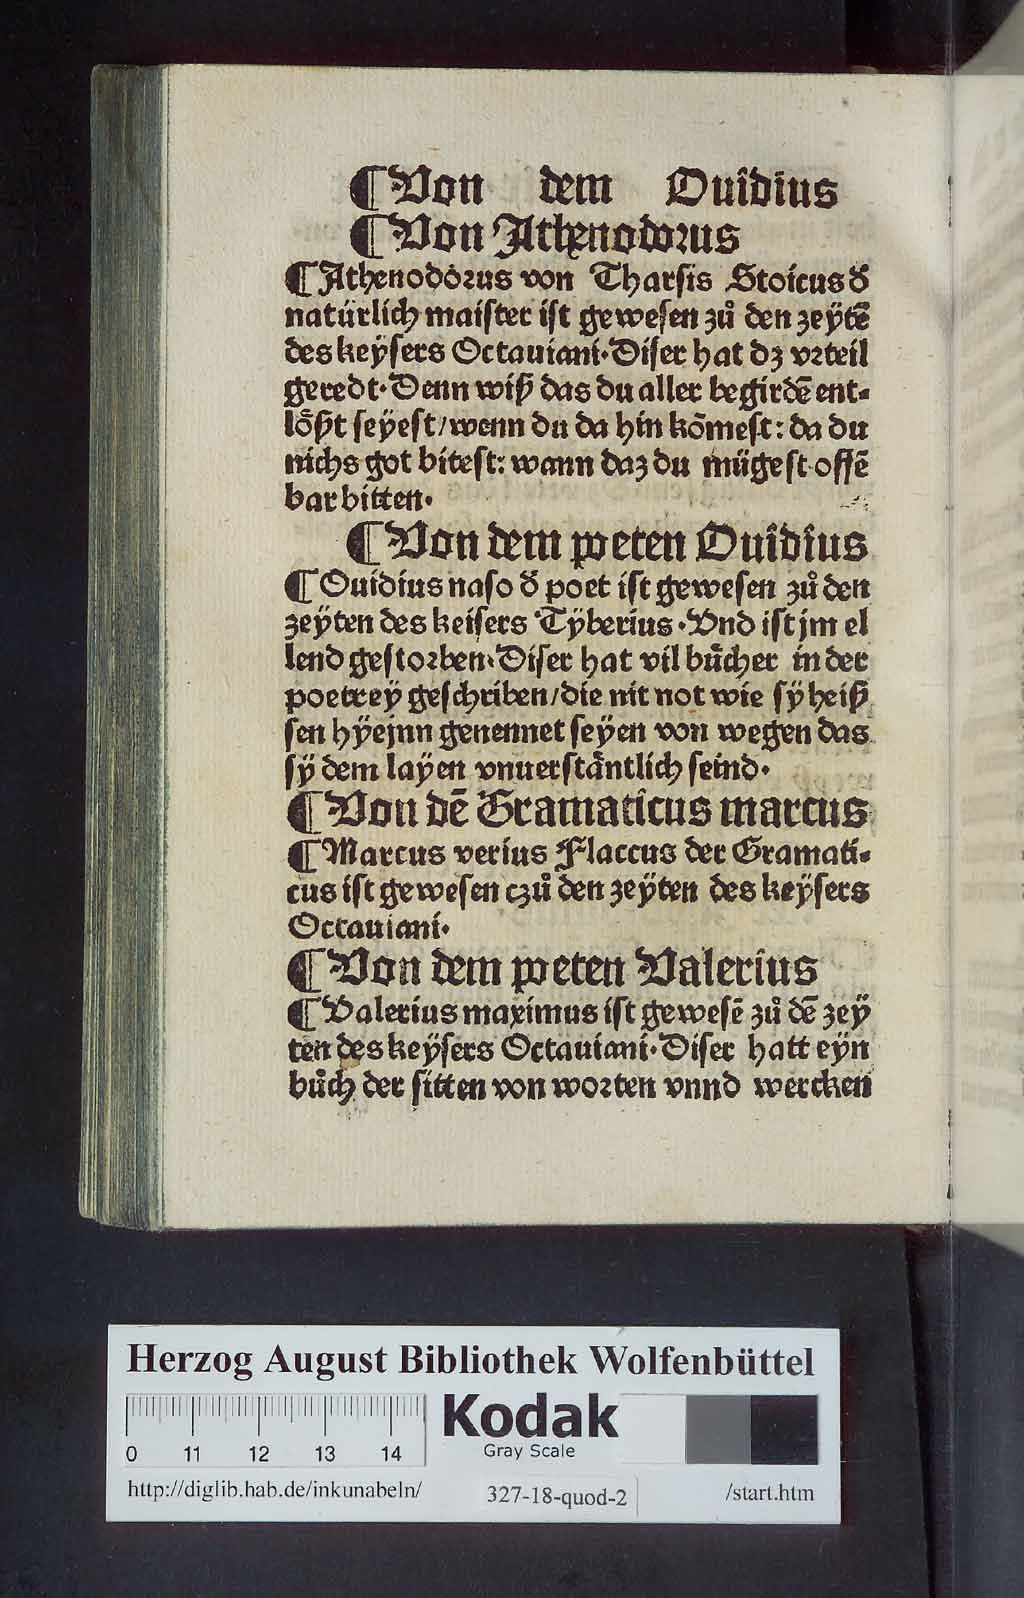 ¶Von dem Ouidius
¶Von Athenodorus
¶Athenodorus von Tharsis Stoicus d̕
natürlich maister ist gewesen zů den zeÿtē
des keÿsers Octauiani·Diser hat dz vrteil
geredt·Denn wiß das du aller begirdē ent-
lößt seÿest/wenn du da hin kōmest: da du
nichs got bitest: wann daz du mügest offē
bar bitten·
¶Von dem poeten Ouidius
¶Ouidius naso d̕ poet ist gewesen zů den
zeÿten des keisers Tÿberius·Vnd ist jm el
lend gestorben·Diser hat vil bücher in der
poetreÿ geschriben/die nit not wie sÿ heiß
sen hÿejnn genennet seÿen von wegen das
sÿ dem laÿen vnuerstäntlich seind·
¶Von dē Gramaticus marcus
¶Marcus verius Flaccus der Gramati-
cus ist gewesen czů den zeÿten des keÿsers
Octauiani·
¶Von dem poeten Valerius
¶Valerius maximus ist gewesē zů dē zeÿ
ten des keÿsers Octauiani·Diser hatt eÿn
bůch der sitten von worten vnnd wercken
Herzog August Bibliothek Wolfenbüttel
0 11 12 13 14
Kodak
Gray Scale
http://diglib.hab.de/inkunabeln/ 327-18-quod-2 /start.htm